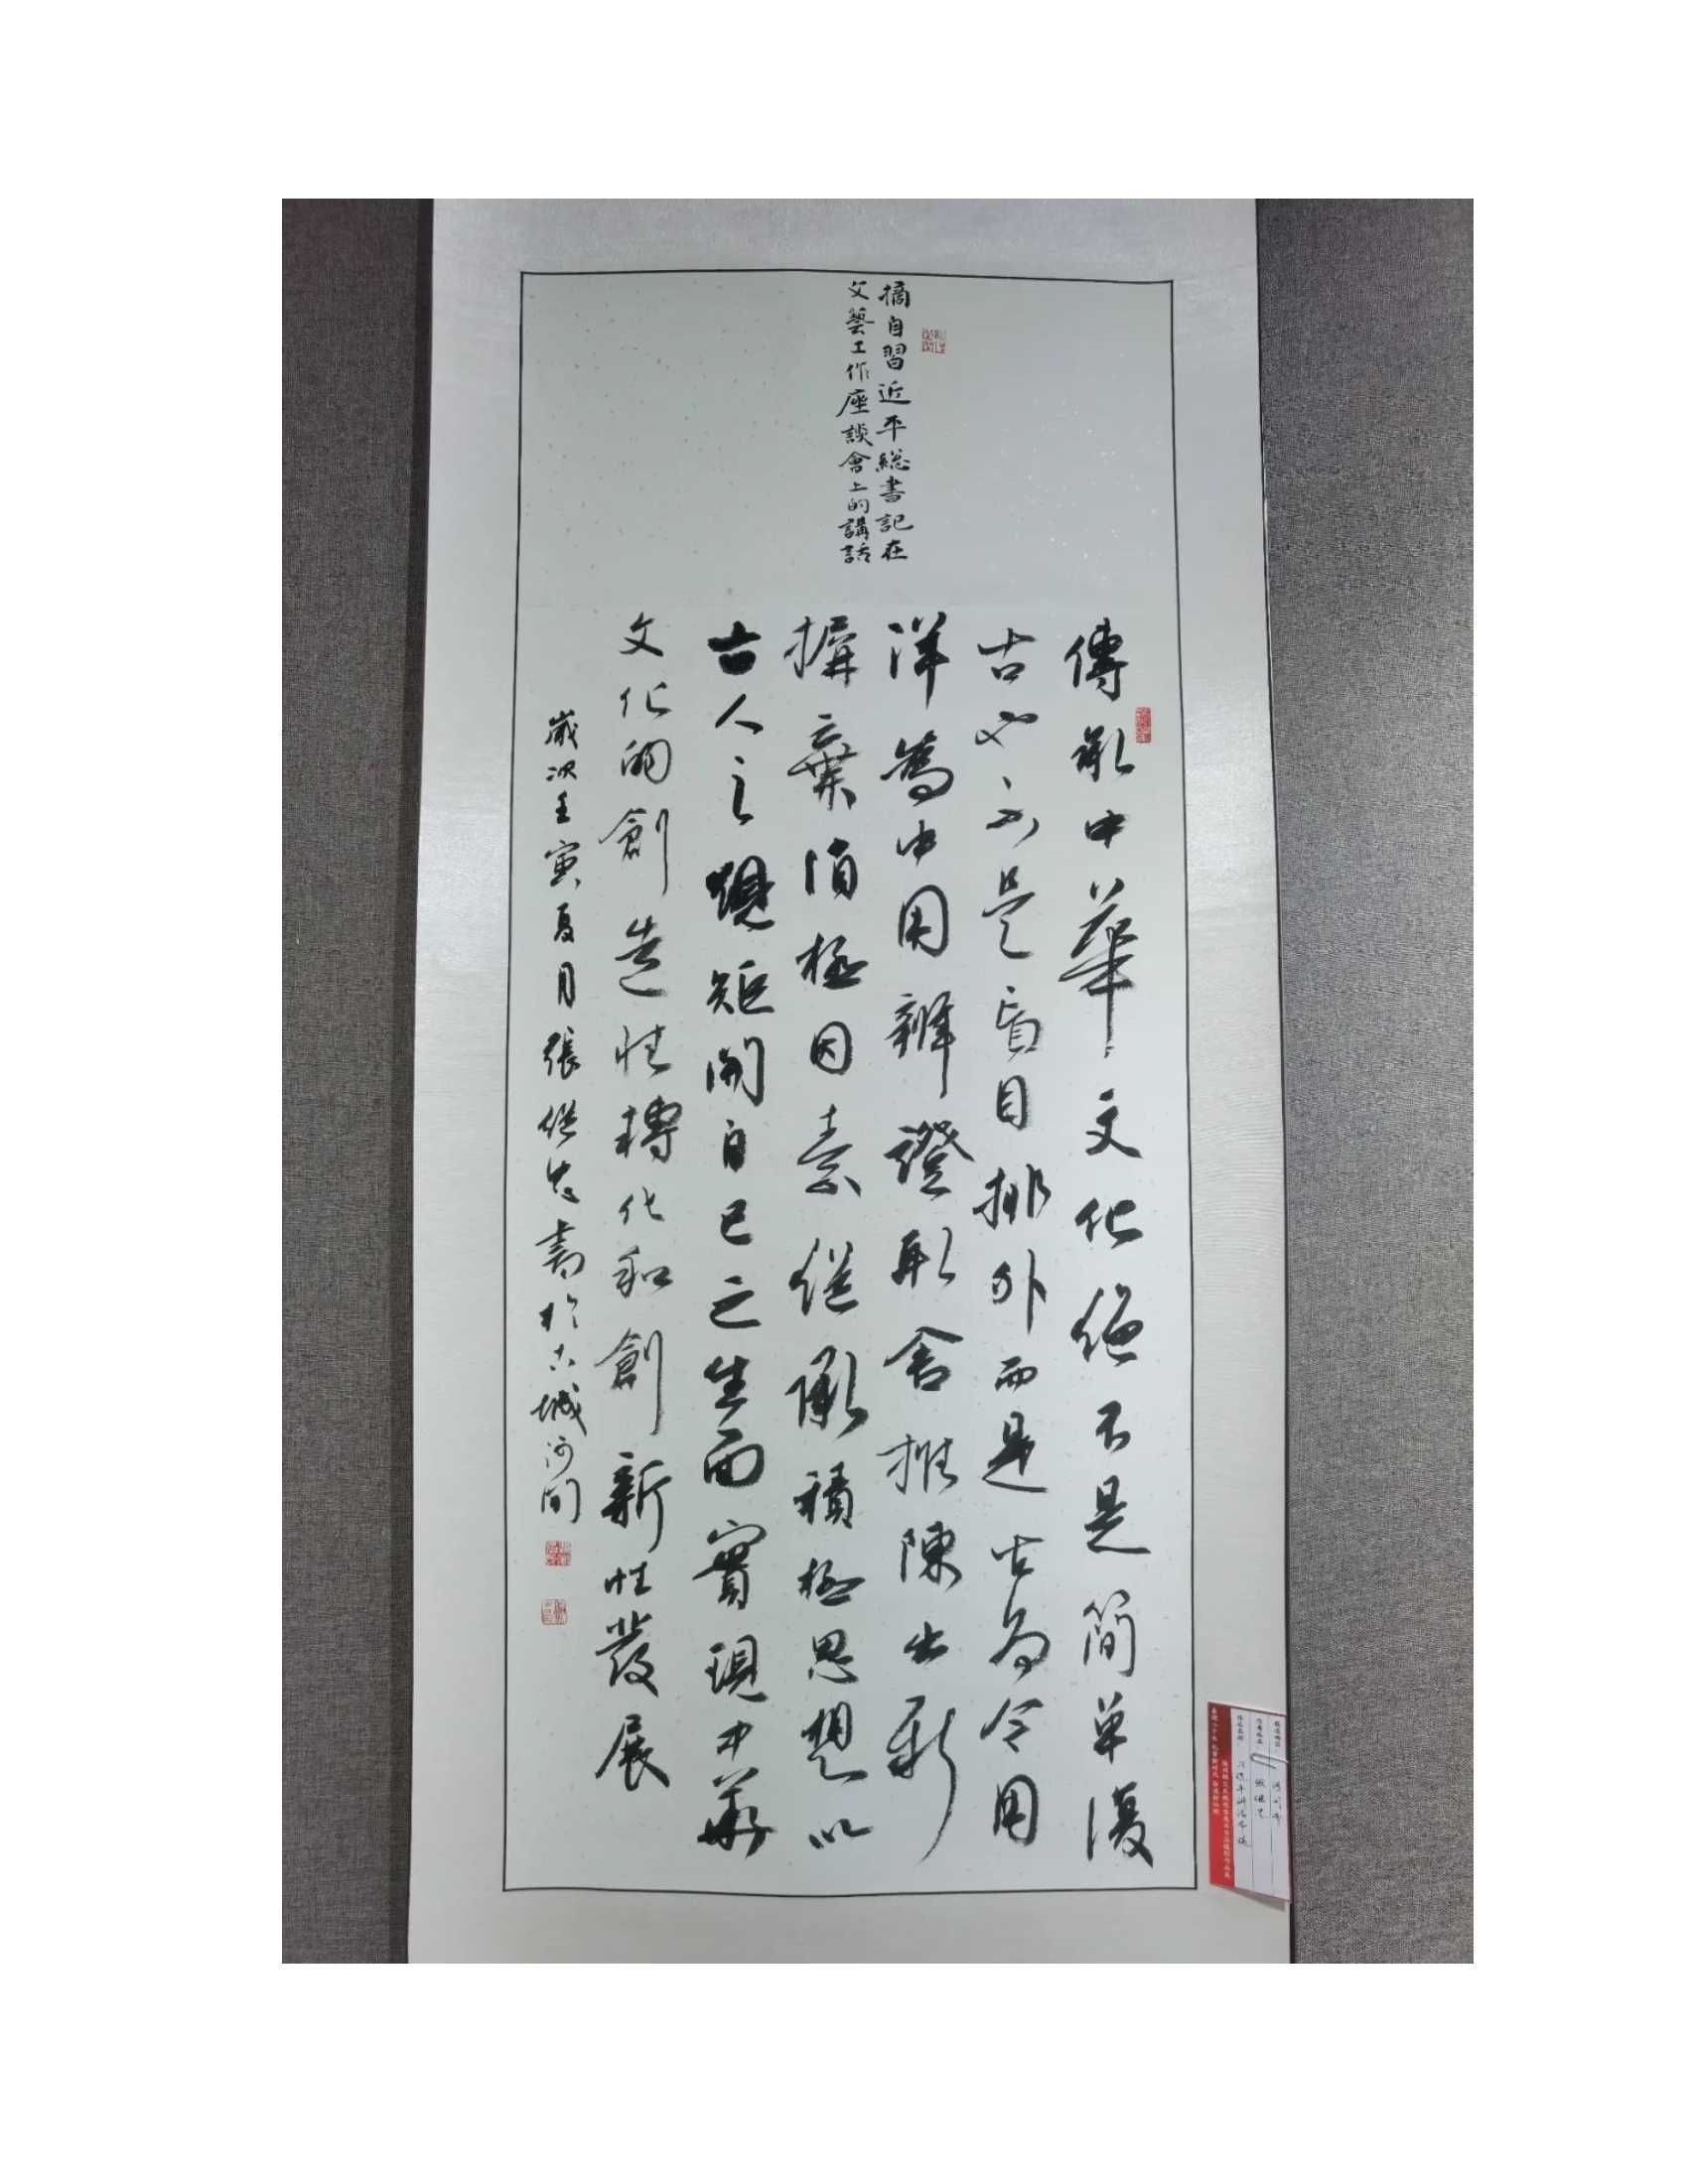 摘自習近平総書記在
文藝工作座談會上的講話
傳承中華文化絕不是簡單復
古也不是盲目排外而是古為今用
洋為中用辯證取舍推陳出新
摒棄消極因素继承積極思想以
古人之規矩開自己之生面實現中華
文化的創造性轉化和創新性發展
歲次壬寅夏月張继忠書於古城河间